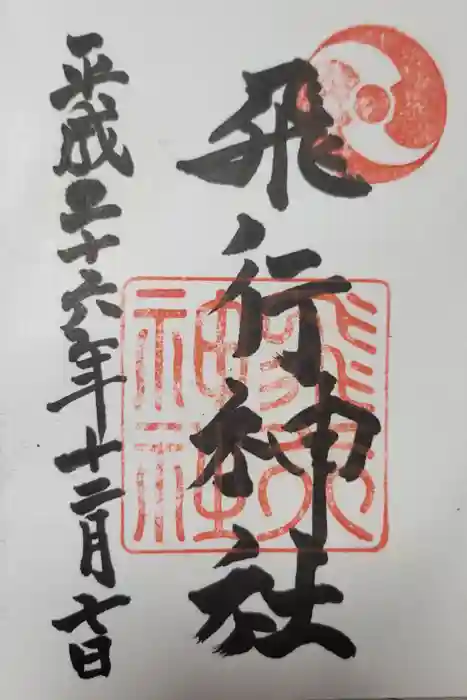 飛行神社
平成二十六年十二月七日
飛行
神社